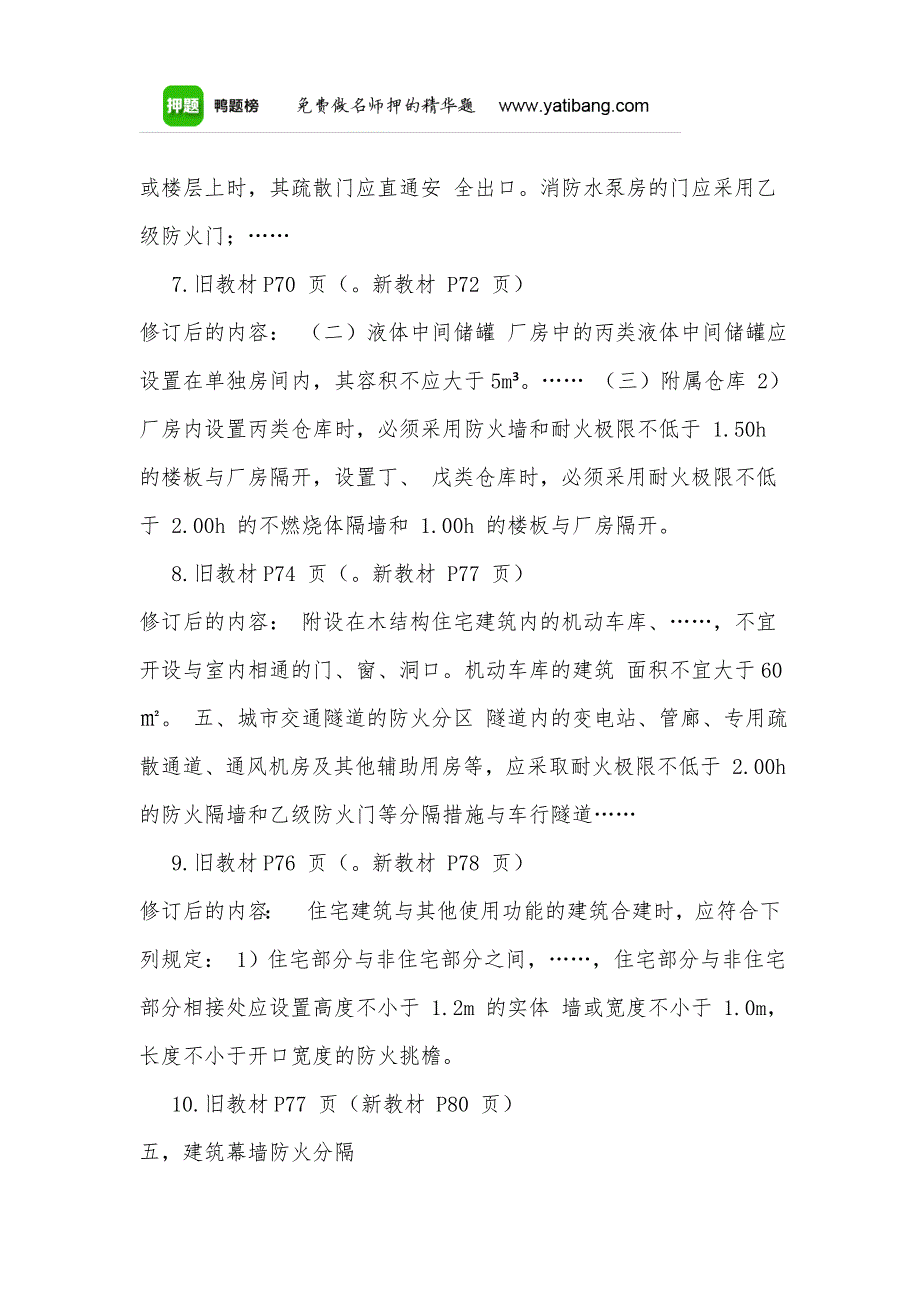 押题 鸭题榜 免费做名师押的精华题 www.yatibang.com
或楼层上时，其疏散门应直通安 全出口。消防水泵房的门应采用乙
级防火门；……
7.旧教材P70 页（。新教材 P72 页）
修订后的内容： （二）液体中间储罐 厂房中的丙类液体中间储罐应
设置在单独房间内，其容积不应大于5m³。…… （三）附属仓库 2）
厂房内设置丙类仓库时，必须采用防火墙和耐火极限不低于 1.50h
的楼板与厂房隔开，设置丁、 戊类仓库时，必须采用耐火极限不低
于 2.00h 的不燃烧体隔墙和 1.00h 的楼板与厂房隔开。
8.旧教材P74 页（。新教材 P77 页）
修订后的内容： 附设在木结构住宅建筑内的机动车库、……，不宜
开设与室内相通的门、窗、洞口。机动车库的建筑 面积不宜大于60
㎡。 五、城市交通隧道的防火分区 隧道内的变电站、管廊、专用疏
散通道、通风机房及其他辅助用房等，应采取耐火极限不低于 2.00h
的防火隔墙和乙级防火门等分隔措施与车行隧道……
9.旧教材P76 页（。新教材 P78 页）
修订后的内容： 住宅建筑与其他使用功能的建筑合建时，应符合下
列规定： 1）住宅部分与非住宅部分之间，……，住宅部分与非住宅
部分相接处应设置高度不小于 1.2m 的实体 墙或宽度不小于 1.0m，
长度不小于开口宽度的防火挑檐。
10.旧教材P77 页（新教材 P80 页）
五，建筑幕墙防火分隔